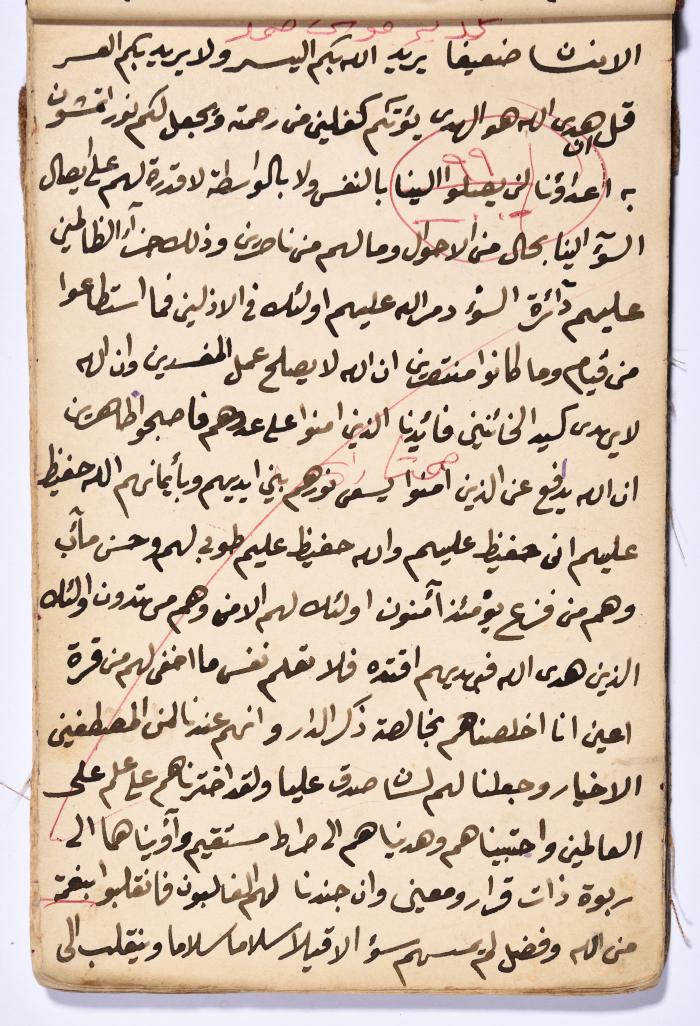 الانسان ضعيفا يريد الله بكم اليسر ولا يريد بكم العسر
قل ان هدى الله هو الهدى يؤتكم كفلين من رحمته ويجعل لكم نورا تمشون
به اعداؤنا لن يصلوا الينا بالنفس ولا بالواسطة لا قدرة لهم على ايصال
السوٓء الينا بحال من الاحوال وما لهم من ناصرين وذلك جزآء الظالمين
عليهم دآئرة السوٓء دمر الله عليهم اولئك فى الاذلين فما استطاعوا
من قيام وما كانوا منتصرين ان الله لا يصلح عمل المفسدين وان الله
لا يهدى كيد الخائنين فايدنا الذين امنوا على عدوهم فاصبحوا ظاهرين
ان الله يدفع عن الذين امنوا يسعى نورهم بين ايديهم وبأيمانهم الله حفيظ
عليهم انى حفيظ عليهم والله حفيظ عليم طوبى لهم وحسن مأٓب
وهم من فزع يومئذ آمنون اولئك لهم الامن وهم مهتدون اولئك
الذين هدى الله فبهديهم اقتده فلا تعلم نفس ما اخفى لهم من قرة
اعين انا اخلصناهم بخالصة ذكر الدار وانهم عندنا لمن المصطفين
الاخيار وجعلنا لهم لسان صدق عليا ولقد اخترناهم على علم على
العالمين واجتبيناهم وهديناهم الى صراط مستقيم وآويناهما الى
ربوة ذات قرار ومعين وان جندنا لهم الغالبون فانقلبوا بنعمة
من الله وفضل لم يمسسهم سوٓء الا قيلا سلاما سلاما وينقلب الى
٩٩